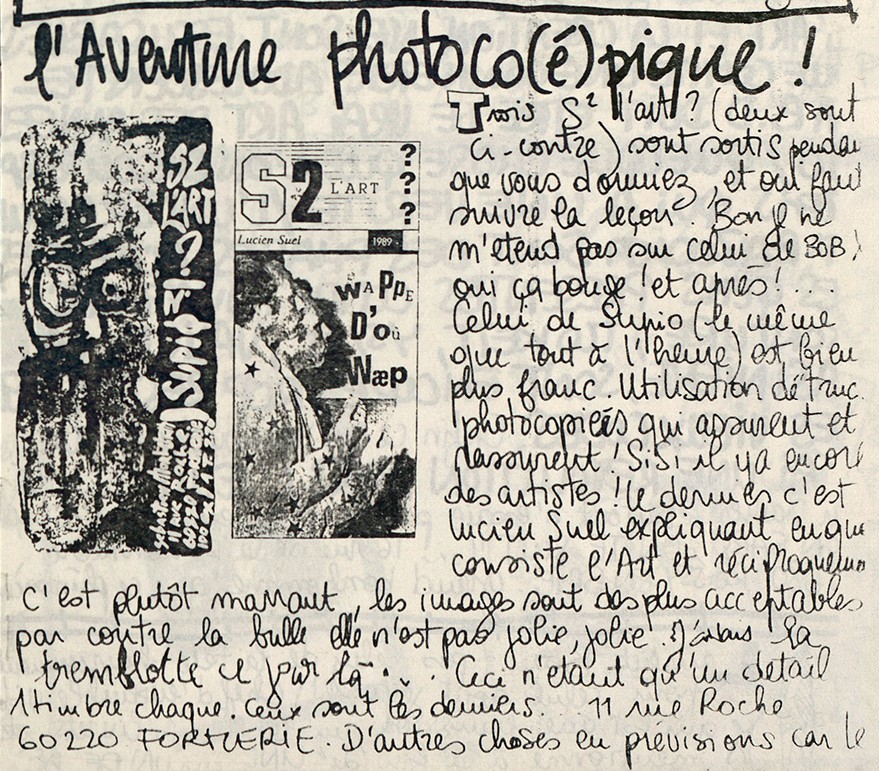 l'Aventure photoco(é)pique !
Trois S² l'art ? (deux sont
ci-contre) sont sortis pendan
que vous dormiez, et oui faut
suivre la leçon. Bon je ne
m'etend pas sur celui de BOB)
oui ça bouge ! et après ! ....
Celui de Supio (le même
que tout à l'heure) est bien
plus franc. Utilisation de truc
photocopiés qui assurent et
rassurent ! Si Si il y a encore
des artistes ! Le dernier c'est
Lucien Suel expliquant en que
consiste l'Art et réciproquemen
c'est plutôt marrant, les images sont des plus acceptables
par contre la bulle elle n'est pas jolie, jolie. J'avais la
tremblotte ce jour là . . . Ceci n'étant qu'un détail
1 timbre chaque. Ceux sont les derniers... 11 rue Roche
60220 FORMERIE. D'autres choses en prévisions car le
S2
L'ART
?
Supio
11 rue Roche
S2 L'ART
? ? ?
Lucien Suel
1989
WAPPE
D'Où
Wæp